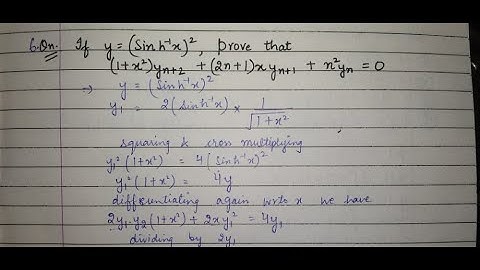 6.Qn. If y = (Sinh⁻¹x)², prove that
(1+x²)yₙ₊₂ + (2n+1)x yₙ₊₁ + n²yₙ = 0
→ y = (Sinh⁻¹x)²
y₁ = 2(Sinh⁻¹x) × 1/√(1+x²)
squaring & cross multiplying
y₁²(1+x²) = 4(Sinh⁻¹x)²
y₁²(1+x²) = 4y
differentiating again w.r.to x we have
2y₁.y₂(1+x²) + 2xy₁² = 4y₁
dividing by 2y₁